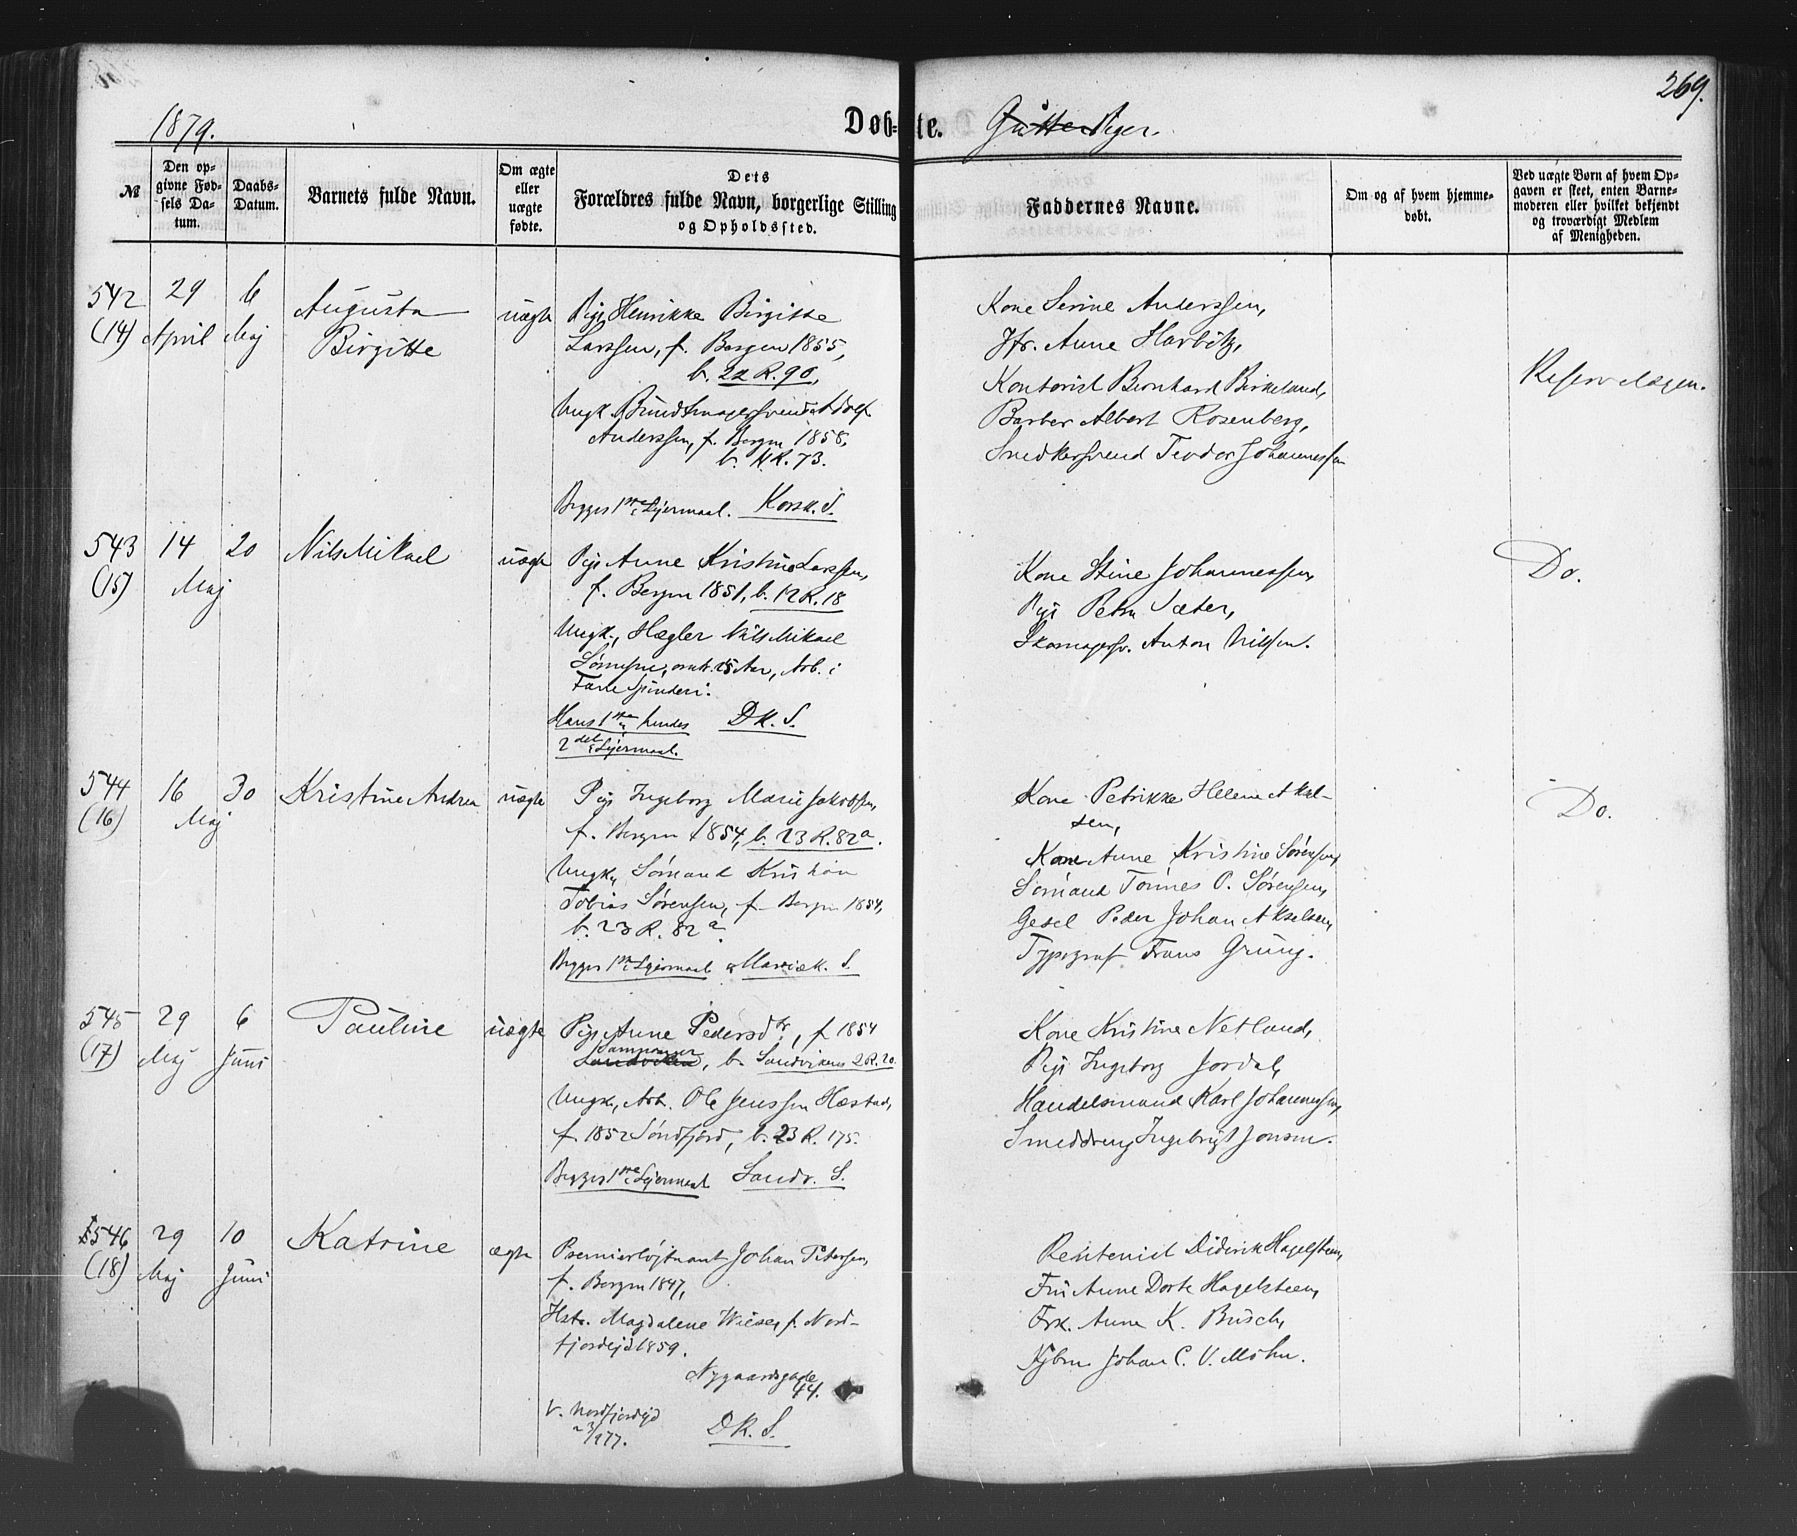 269.
1879.
Døb-te. Gutter Piger.
№
Den opgivne Fødsels Datum.
Daabs-Datum.
Barnets fulde Navn.
Om ægte eller uægte fødte.
Dets Forældres fulde Navn, borgerlige Stilling og Opholdssted.
Faddernes Navne.
Om og af hvem hjemmedøbt.
Ved uægte Børn af hvem Opgaven er skeet, enten Barnemoderen eller hvilket bekjendt og troværdigt Medlem af Menigheden.
542
(14)
29
April
6
Maj
Augusta
Birgitte
uægte
Pige Henrikke Birgitte
Larssen, f. Bergen 1855,
b. 22 R. 90,
Ungk. Bundtmagersvend Adolf
Anderssen, f. Bergen 1858,
R. 73.
Begges 1ste Lejermaal. Korsk. S.
Kone Serine Anderssen,
Jfr. Anne
Kontorist Bernhard Birkeland,
Barber Albert Rosenberg,
Snedkersvend Teodor Johannessen
543
(15)
14
Maj
20
Nils Mikael
uægte
Pige Anne Kristine Larssen,
f. Bergen 1851, b. 12 R. 18
Ungk., Hægler Nils Mikael
omtr. 25 Aar, Arb. i
Hans 1ste hendes DK. S.
2det Lejermaal.
Kone Stine Johannessen,
Pige Petra Sæter,
Skomagersv. Anton Nilssen.
Do.
544
(16)
16
Maj
30
Kristine Andrea
uægte
Pige Ingeborg Marie Jakobsen,
f. Bergen 1854, b. 23 R. 82a.
Ungk., Sømand Kristian
Tobias Sørensen, f. Bergen 1854,
b. 23 R. 82a
Begges 1ste Lejermaal Mariæk. S.
Kone Petrikke Helene Aksel-
sen,
Kone Anne Kristine Sørensen,
Sømand Tønnes P. Sørensen,
Gesel Peder Johan Akselsen,
Typograf Frans Grung.
Do.
545
(17)
29
Maj
6
Juni
Pauline
uægte
Pige Anne Pedersdtr, f 1854
Hamnanger
Sandviken, b. Sandvikens 2 R. 20.
Ungk., Arb. Ole Jenssen Hæstad,
f 1852 Søndfjord, b. 23 R. 175.
Begges 1ste Lejermaal Sandv. S.
Kone Kristine Netland,
Pige Ingeborg Jordal,
Handelsmand Karl Johannessen,
Smeddreng Ingebrigt Jonsen.
546
(18)
29
Maj
10
Juni
Katrine
ægte
Premierløjtnant Johan Petersen,
f. Bergen 1847,
Hstr. Magdalene Wiese, f. Nord-
fjordejd 1859.
Nygaardsgade
44.
v. Nordfjordejd
DK. S.
Rentenist Diderik Hagelsteen,
Fru Anne Dorte Hagelsteen,
Frk. Anne K. Busch,
Kjbm. Johan C. V. Mohn.